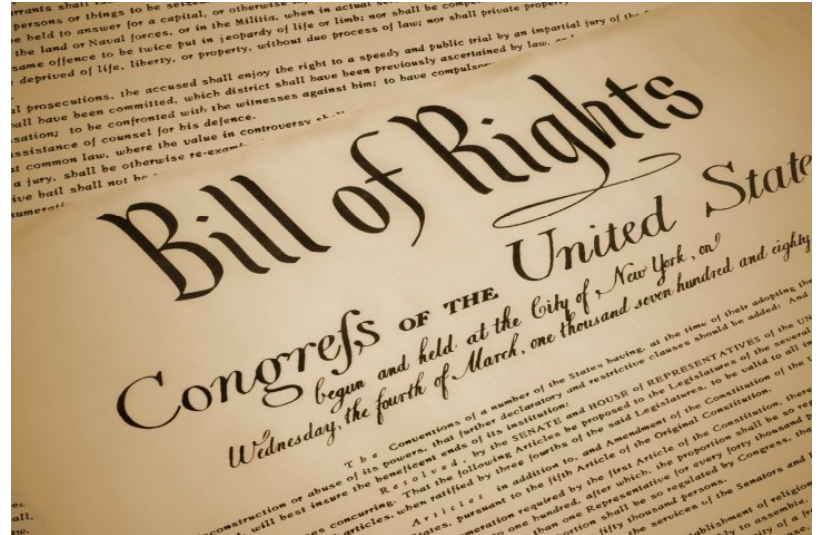 rrants shall
persons or things to be seized
be held to answer for a capital, or otherwise
the land or Naval forces, or in the Militia, when in actual
same offence to be twice put in jeopardy of life or limb; nor shall be
deprived of life, liberty, or property, without due process of law; nor shall private property
l prosecutions, the accused shall enjoy the right to a speedy and public trial by an impartial jury of the
all have been committed, which district shall have been previously ascertained by law,
sation; to be confronted with the witnesses against him; to have compulsor
ssistance of counsel for his defence.
t common law, where the value in controversy
a jury, shall be otherwise re-exam
ive bail shall not be
numerati
Bill of Rights
Congreſs OF THE United State
begun and held at the City of New York, on
Wednesday, the fourth of March, one thousand seven hundred and eighty
The Conventions of a number of the States having, at the time of their adopting the
construction or abuse of its powers, that further declaratory and restrictive clauses should be added: And
will best insure the beneficent ends of its institution;
Resolved, by the SENATE and HOUSE of REPRESENTATIVES of the UN
es concurring. That the following Articles be proposed to the Legislatures of the several
articles, when ratified by three fourths of the said Legislatures, to be valid to all in
Articles in addition to, and Amendment of the Constitution of the U
States, pursuant to the fifth Article of the Original Constitution.
meration required by the first Article of the Constitution, there
to one hundred, after which, the proportion shall be so re
than one Representative for every forty thousand p
ortion shall be so regulated by Congress, tha
fifty thousand persons.
the services of the Senators and
ablishment of religion
ly to assemble,
ity of a fr
use,
ec.
all.